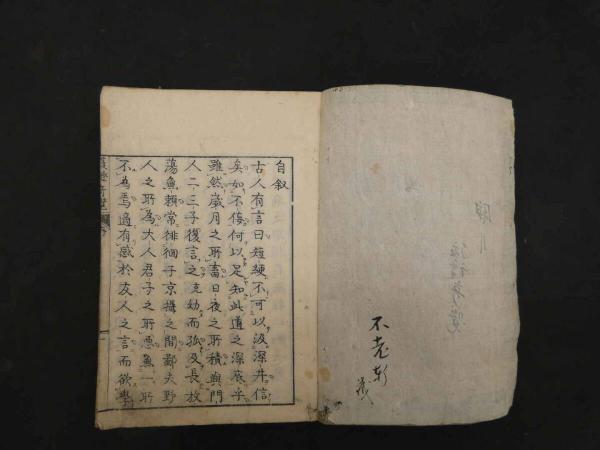 自叙
古人有言曰短綆不可以汲深井信
矣如不佞何以足知此道之深底乎
雖然歳月之所畜日夜之所積與門
人二三子復言之克幼而孤及長放
蕩無頼常徘徊于京攝之間鄙夫野
人之所為大人君子之所悪無一所
不為焉適有感於友人之言而欲學
不老軒
蔵